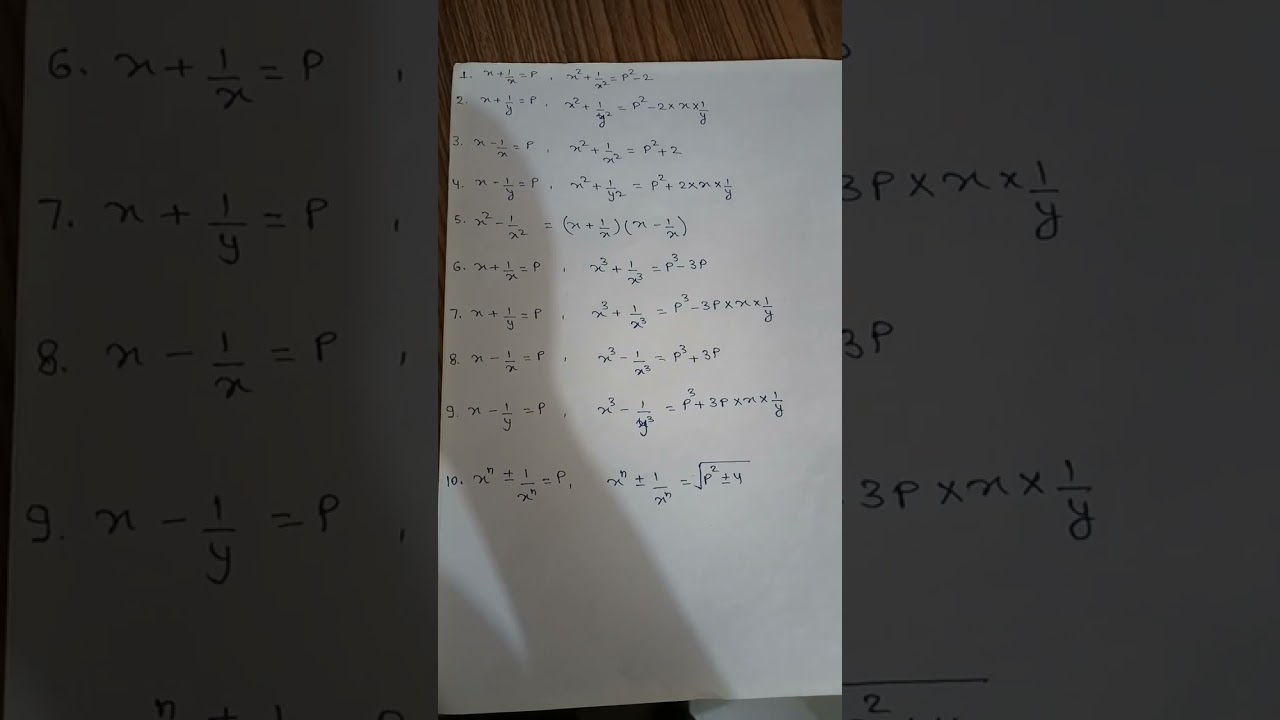 1. x + 1/x = P , x² + 1/x² = P² - 2
2. x + 1/y = P , x² + 1/y² = P² - 2 × x × 1/y
3. x - 1/x = P , x² + 1/x² = P² + 2
4. x - 1/y = P , x² + 1/y² = P² + 2 × x × 1/y
5. x² - 1/x² = (x + 1/x)(x - 1/x)
6. x + 1/x = P , x³ + 1/x³ = P³ - 3P
7. x + 1/y = P , x³ + 1/x³ = P³ - 3P × x × 1/y
8. x - 1/x = P , x³ - 1/x³ = P³ + 3P
9. x - 1/y = P , x³ - 1/y³ = P³ + 3P × x × 1/y
10. xⁿ ± 1/xⁿ = P , xⁿ ± 1/xⁿ = √(P² ± 4)
6. x + 1/x = P ,
7. x + 1/y = P , 3P × x × 1/y
8. x - 1/x = P , 3P
9. x - 1/y = P , 3P × x × 1/y